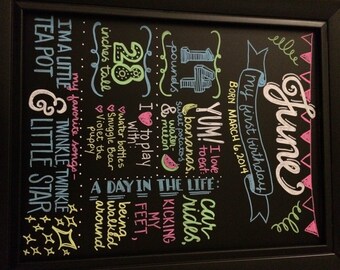 June
my first birthday
BORN MARCH 6, 2014
14
pounds
28
inches tall
YUM! I love
to eat
bananas,
sweet potatoes
& water
melon
I ♥ to
play
with
♥ water bottles
♥ Snuggle Bear
♥ Violet the
puppy
A DAY IN THE LIFE
car
rides,
KICKING
MY
FEET,
being
walked
around
my favorite songs
I'M A LITTLE
TEA POT
&
TWINKLE TWINKLE
LITTLE STAR